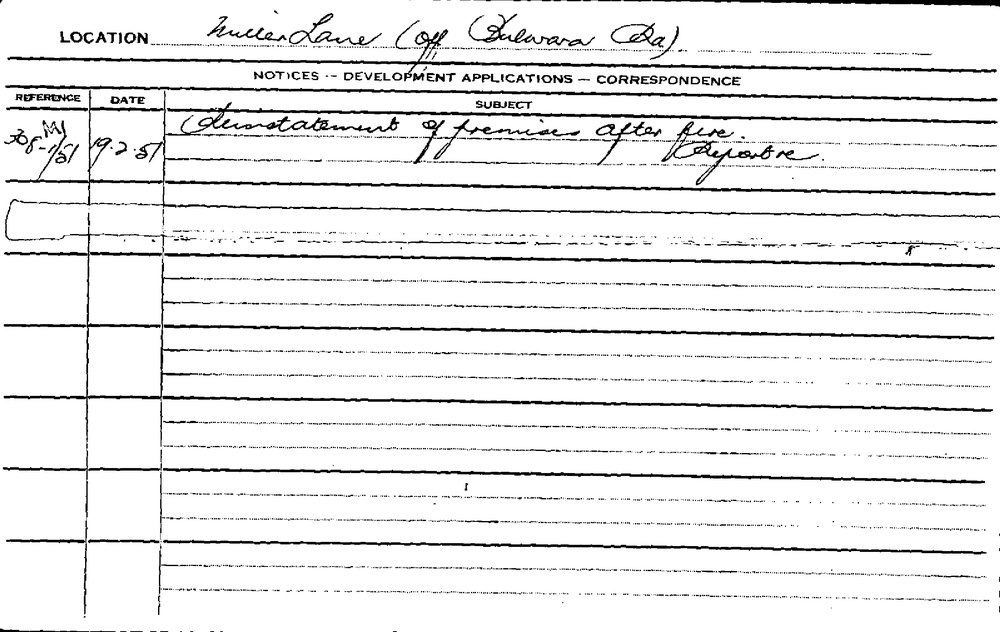 LOCATION Miller Lane (off Bulwara Rd).
NOTICES -- DEVELOPMENT APPLICATIONS — CORRESPONDENCE
REFERENCE DATE SUBJECT
19.2.51 Reinstatement of premises after fire.
Report re